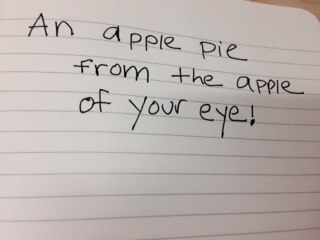 An apple pie
from the apple
of your eye!